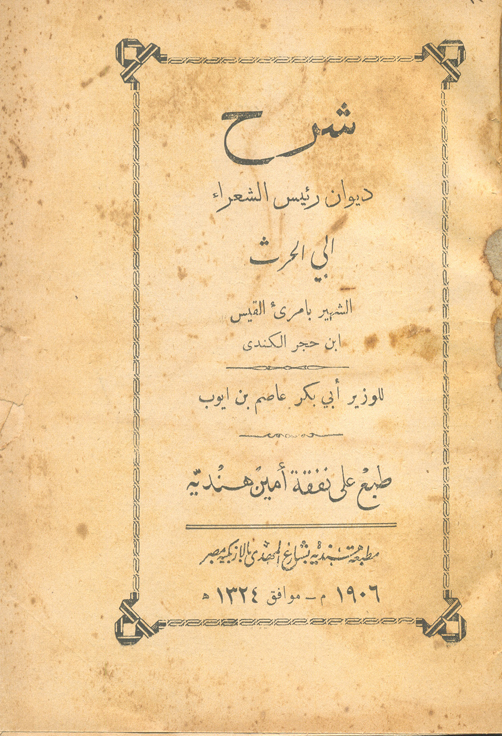 شرح
ديوان رئيس الشعراء
ابي الحرث
الشهير بامرئ القيس
ابن حجر الكندى
للوزير أبي بكر عاصم بن ايوب
طبع على نفقة أمين هندية
مطبعة هندية بشارع المهدى بالازبكية بمصر
١٩٠٦ م – موافق ١٣٢٤ ه